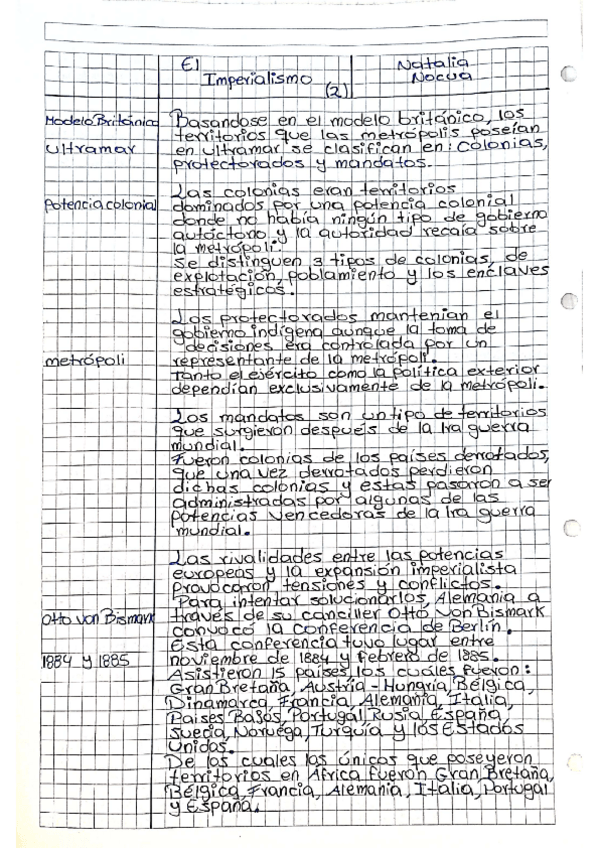 El
Imperialismo
(2)
Natalia
Nocua
Modelo Británico
Ultramar
Potencia colonial
metrópoli
Otto von Bismark
1884 y 1885
Basandose en el modelo británico, los
territorios que las metrópolis poseían
en ultramar se clasifican en: Colonias,
protectorados y mandatos.
Las colonias eran territorios
dominados por una potencia colonial
donde no había ningún tipo de gobierno
autóctono y la autoridad recaía sobre
la metrópoli.
Se distinguen 3 tipos de colonias, de
explotación, poblamiento y los enclaves
estratégicos.
Los protectorados mantenian el
gobierno indígena aunque la toma de
decisiones era controlada por un
representante de la metrópoli.
Tanto el ejército como la política exterior
dependían exclusivamente de la metrópoli.
Los mandatos son un tipo de territorios
que surgieron después de la 1ra guerra
mundial.
Fueron colonias de los países derrotados,
que una vez derrotados perdieron
dichas colonias y estas pasaron a ser
administradas por algunas de las
potencias vencedoras de la 1ra guerra
mundial.
Las rivalidades entre las potencias
europeas y la expansión imperialista
provocaron tensiones y conflictos.
Para intentar solucionarlos, Alemania a
través de su canciller Otto Von Bismark
convocó la Conferencia de Berlín.
Esta conferencia tuvo lugar entre
noviembre de 1884 y febrero de 1885.
Asistieron 15 países los cuáles fueron:
Gran Bretaña, Austria-Hungría, Bélgica,
Dinamarca, Francia, Alemania, Italia,
Paises Bajos, Portugal, Rusia, España,
Suecia, Noruega, Turquía y los Estados
Unidos.
De los cuales los únicos que poseyeron
territorios en África fueron Gran Bretaña,
Bélgica, Francia, Alemania, Italia, Portugal
y España.